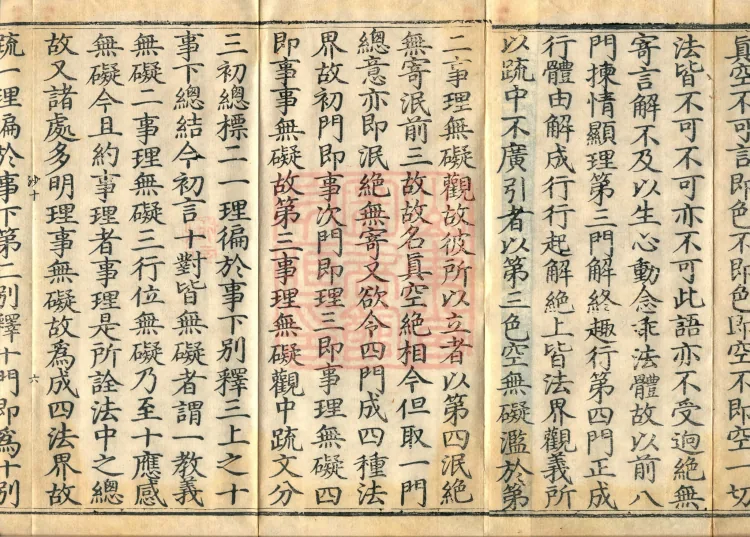 眞空不可言即色不即色即空不即空一切
法皆不可不可亦不可此語亦不受逈絶無
寄言解不及以生心動念乖法體故以前八
門揀情顯理第三門解終趣行第四門正成
行體由解成行行起解絶上皆法界觀義所
以䟽中不廣引者以第三色空無礙濫於第
二事理無礙觀故彼所以立者以第四泯絶
無寄泯前三故故名眞空絶相今但取一門
總意亦即泯絶無寄又欲令四門成四種法
界故初門即事次門即理三即事理無礙四
即事事無礙故第三事理無礙觀中䟽文分
三初總標二一理徧於事下別釋三上之十
事下總結今初言十對皆無礙者謂一教義
無礙二事理無礙三行位無礙乃至十應感
無礙今且約事理者事理是所詮法中之總
故又諸處多明理事無礙故爲成四法界故
鈔十 六
䟽一理徧於事下第二別釋十門即爲十別